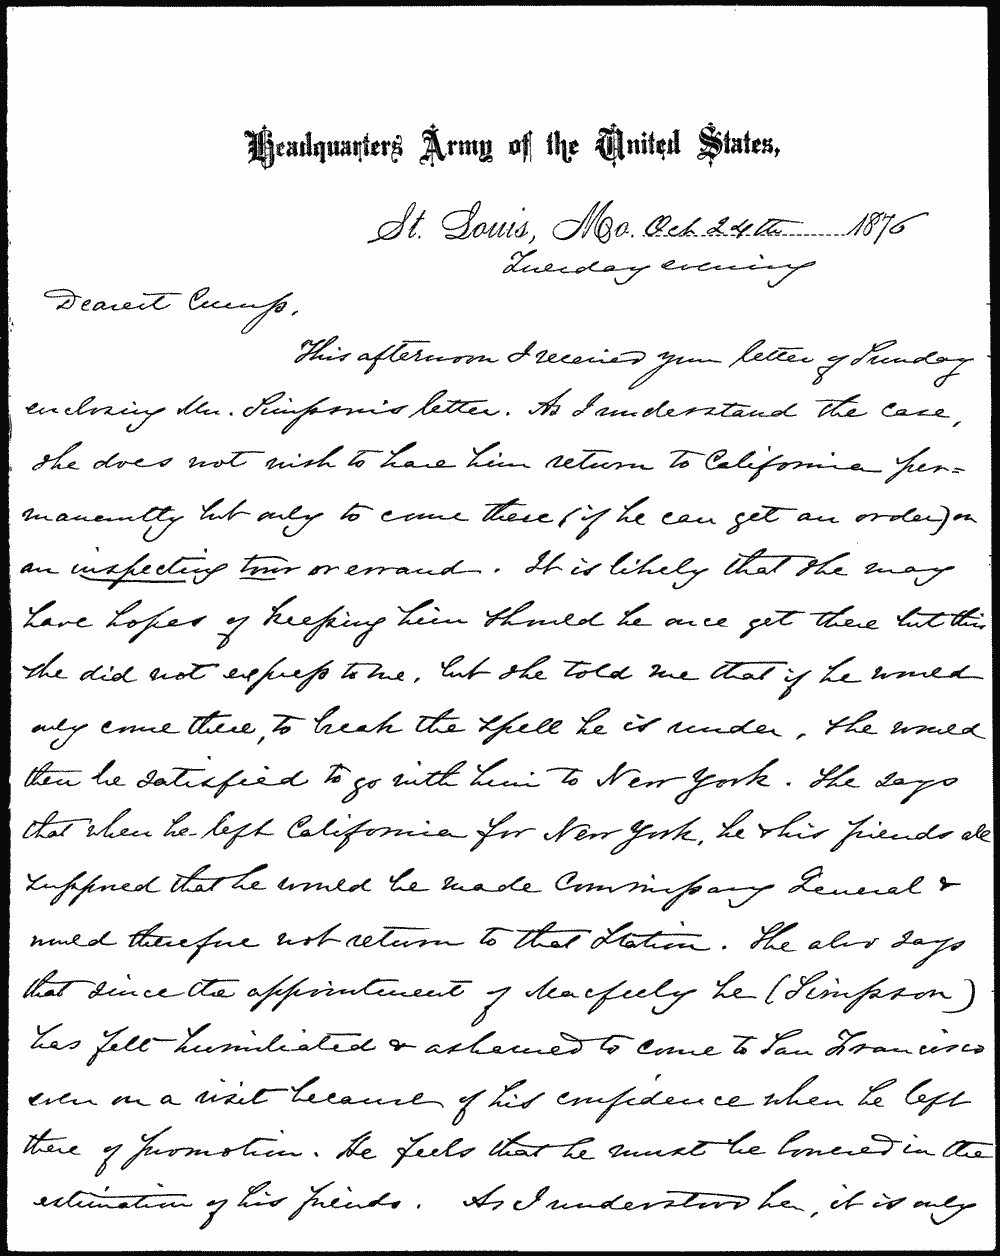 Headquarters Army of the United States,
St. Louis, Mo. Oct. 24th 1876
Tuesday evening
Dearest Cump,
This afternoon I received your letter of Sunday
enclosing Mr. Simpson's letter. As I understand the case,
she does not wish to have him return to California per=
manently but only to come there (if he can get an order) on
an inspecting tour or errand. It is likely that she may
have hopes of keeping him should he once get there but this
she did not express to me, but she told me that if he would
only come there, to break the spell he is under, she would
then be satisfied to go with him to New York. She says
that when he left California for New York, he & his friends all
supposed that he would be made Commissary General &
would therefore not return to that Station. She also says
that since the appointment of Macfeely he (Simpson)
has felt humiliated & ashamed to come to San Francisco
even on a visit because of his confidence when he left
there of promotion. He feels that he must be lowered in the
estimation of his friends. As I understood her, it is only